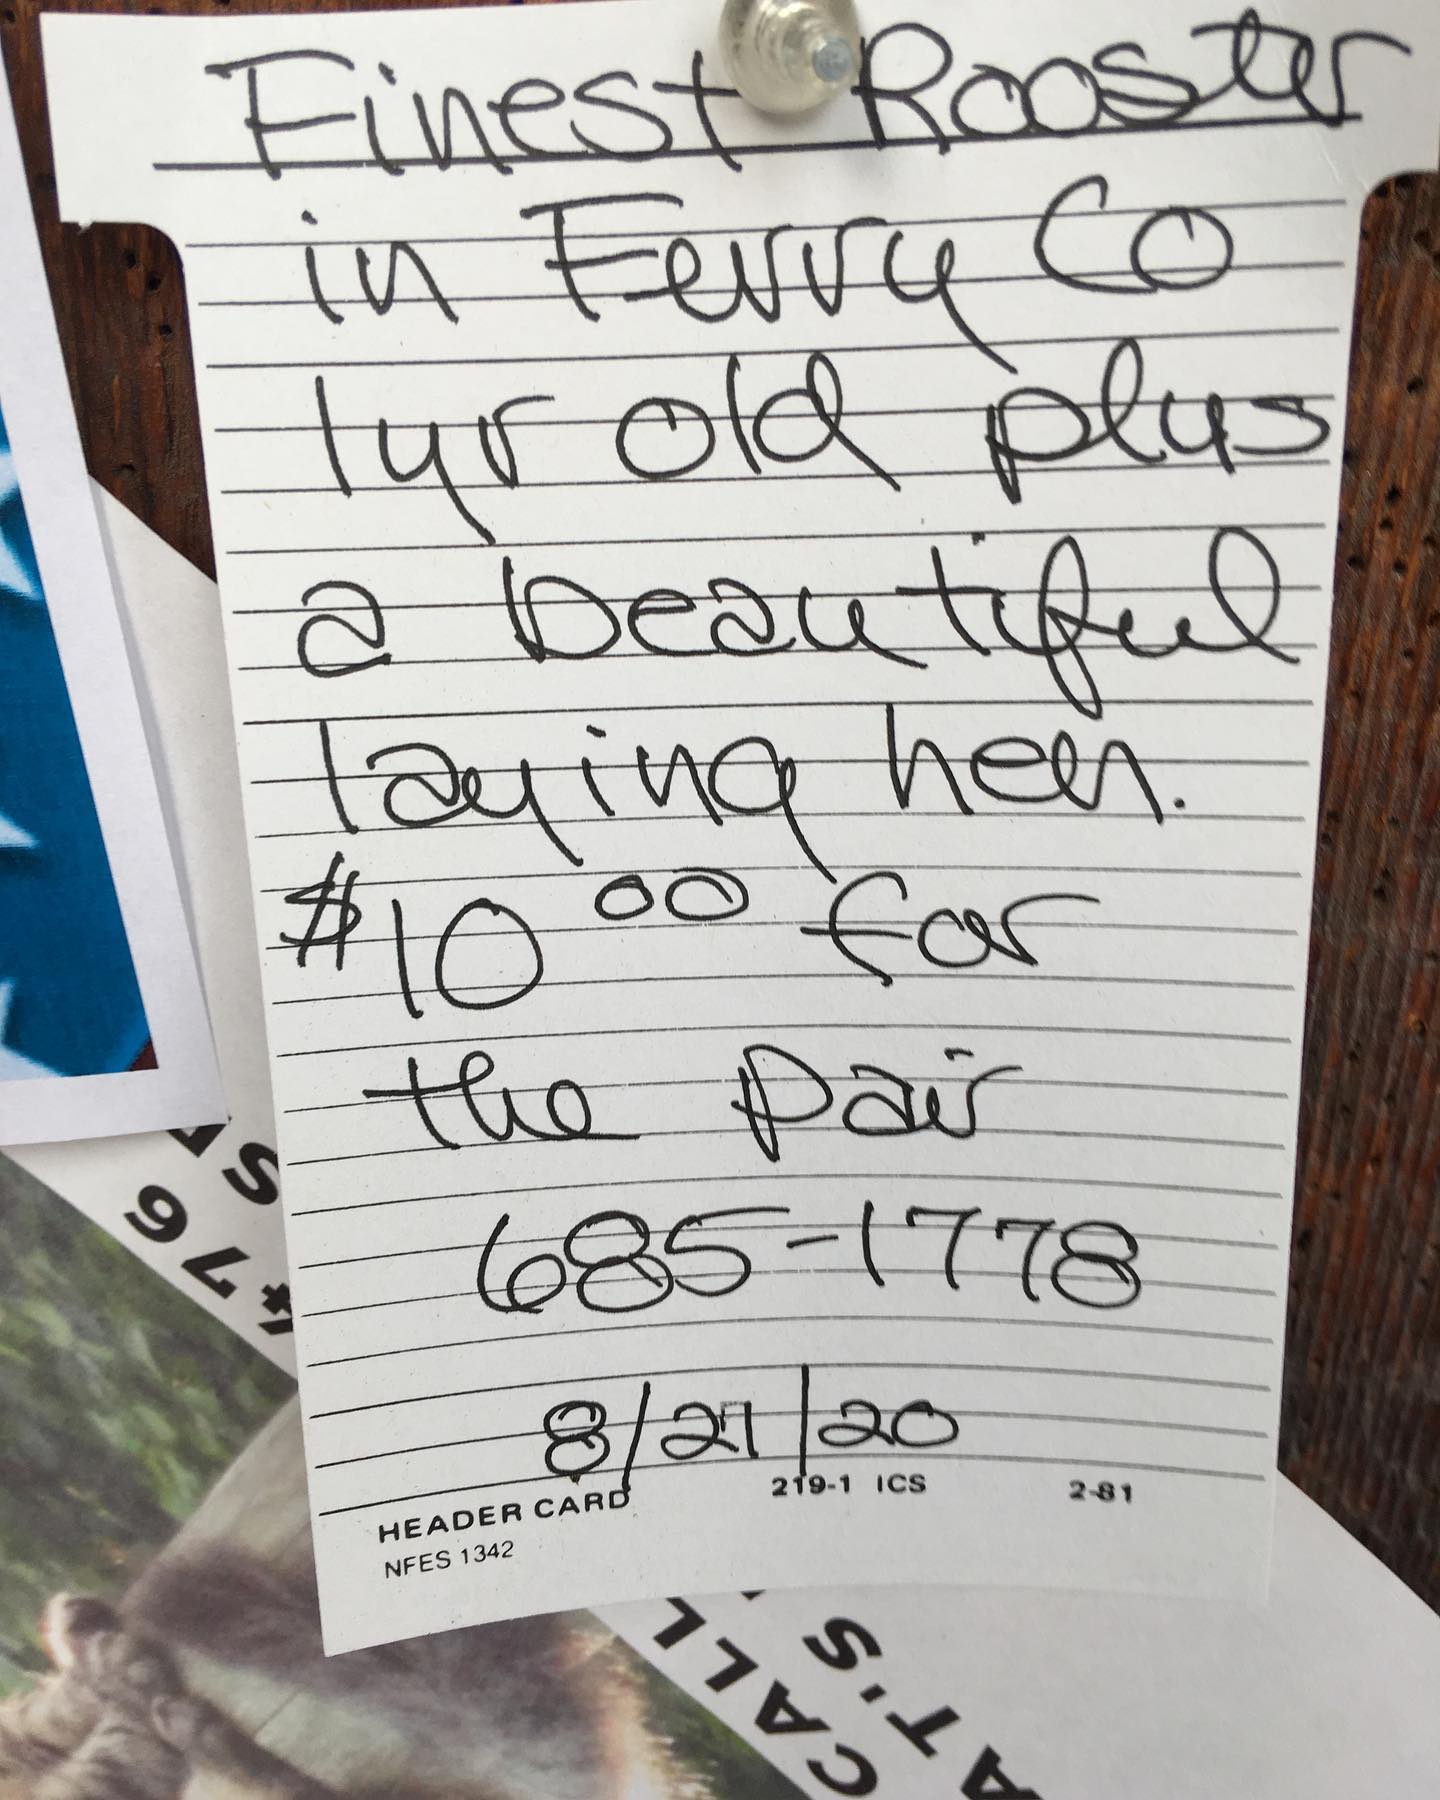 Finest Rooster
in Ferry Co
1yr old plus
a beautiful
laying hen.
$10 00 for
the pair
685-1778
8/21/20
HEADER CARD 219-1 ICS 2-81
NFES 1342
76
CALL
AT'S